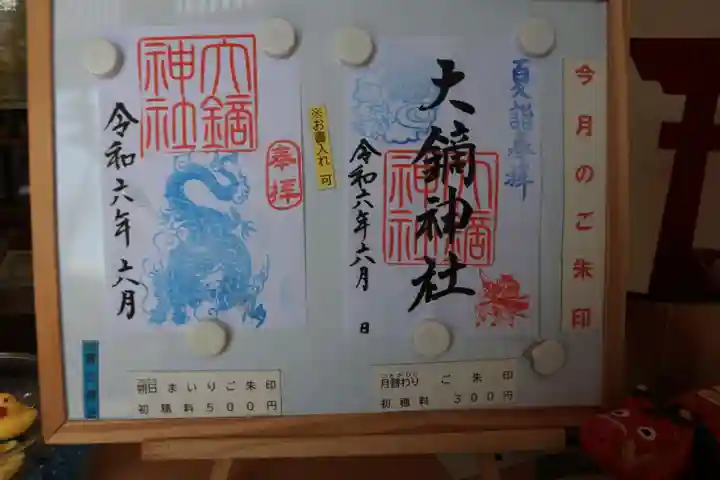 今月のご朱印
夏詣奉拝
大鏑神社
大鏑
神社
令和六年六月 日
※お書入れ可
大鏑
神社
奉拝
令和六年六月
朔日まいりご朱印
初穂料 500円
月替わり ご朱印
初穂料 300円